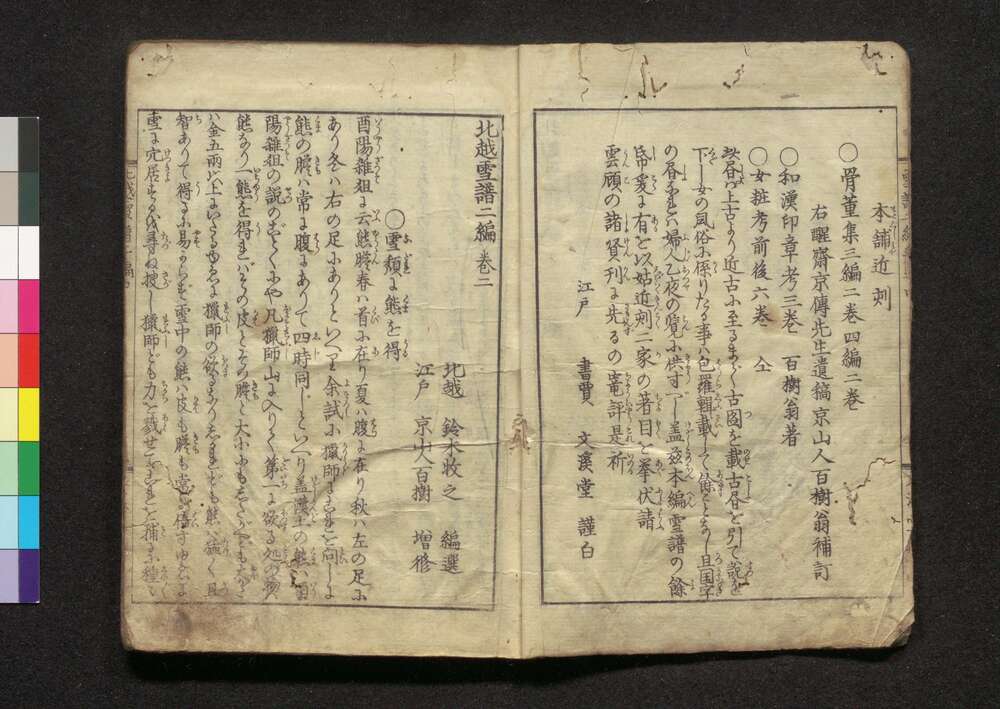 本舗近刻
〇骨董集三編二巻四編二巻
右醒齋京傳先生遺稿京山人百樹翁補訂
〇和漢印章考三巻 百樹翁著
〇女粧考前後六巻 仝
此各ハ上古より近古に至るまで古圖を載古各を引て説を
下し女の風俗に係りたる事ハ包羅輯載して餘すことなし且国字
の各なれバ婦人乙夜の覧に供すべし盖本編雪譜の餘
帋爰に有を以姑近刻二家の著目を挙伏請
雲顧の諸賢刊に先るの寵評是祈
江戸 書賈 文溪堂 謹白
北越雪譜二編 巻二
北越 鈴木牧之 編選
江戸 京山人百樹 増修
〇雪頽に熊を得
酉陽雑俎に云熊膽春ハ首に在り夏ハ腹に在り秋ハ左の足に
あり冬ハ右の足にありといへり余試に猟師にこれを問しに
熊の膽ハ常に腹にありて四時同じといへり盖漢土の熊ハ酉
陽雑俎の説のごとくにや凡猟師山に入りて第一に欲る処の物ハ
熊なり一熊を得れバその皮とその膽と大小にもしたがへども大かた
ハ金五両以上にいたるゆゑに猟師の欲るなりしかれども熊ハ猛く且
智ありて得るに易からず雪中の熊ハ皮も膽も常に倍すゆゑに
雪に穴居するを尋ね捜し猟師ども力を戮せてこれを捕に種々